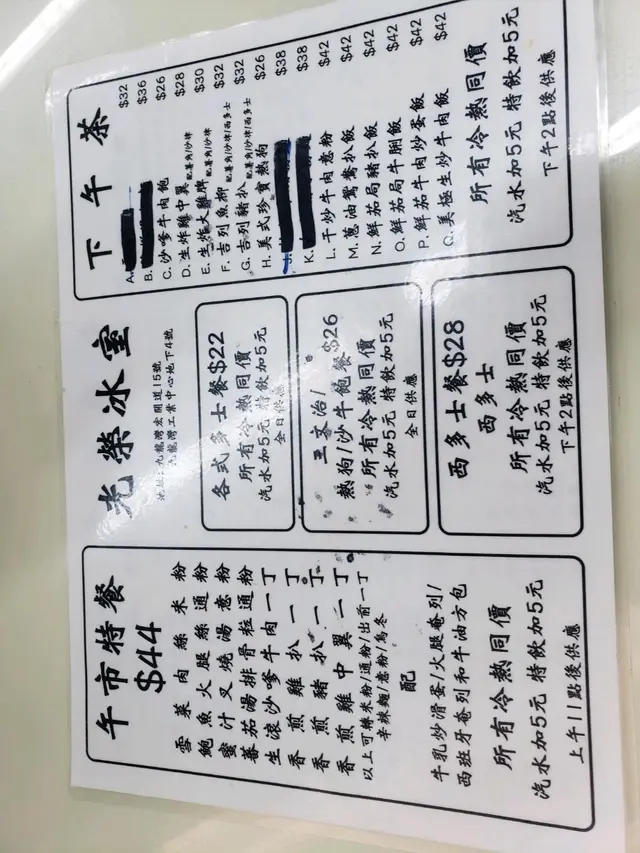 午市特餐
$44
雪菜肉絲米粉
鮑魚火腿絲通粉
蜜汁叉燒湯意粉
蕃茄湯排骨粒通粉
生滾沙爹牛肉一丁
香煎雞扒一丁
香煎豬扒一丁
香煎雞中翼二丁
以上可轉米粉/通粉/出前一丁
辛辣麵/意粉/烏冬
配
牛乳炒滑蛋/火腿奄列/
西班牙奄列和牛油方包
所有冷熱同價
汽水加5元 特飲加5元
上午11點後供應
光榮冰室
地址:九龍灣宏開道15號
九龍灣工業中心地下4號
各式多士餐$22
所有冷熱同價
汽水加5元 特飲加5元
全日供應
三文治/
熱狗/沙牛飽餐$26
所有冷熱同價
汽水加5元 特飲加5元
全日供應
西多士餐$28
西多士
所有冷熱同價
汽水加5元 特飲加5元
下午2點後供應
下午茶
A. $32
B. $36
C. 沙爹牛肉飽 $26
D. 生炸雞中翼 配薯角/沙律 $28
E. 生炸大雞脾 配薯角/沙律 $30
F. 吉列魚柳 配薯角/沙律/西多士 $32
G. 吉列豬扒 配薯角/沙律/西多士 $32
H. 美式珍寶熱狗 $26
J. $38
K. $38
L. 干炒牛肉意粉 $42
M. 蔥油鴛鴦扒飯 $42
N. 鮮茄局豬扒飯 $42
O. 鮮茄局牛脷飯 $42
P. 鮮茄牛肉炒蛋飯 $42
Q. 美極生炒牛肉飯 $42
所有冷熱同價
汽水加5元 特飲加5元
下午2點後供應